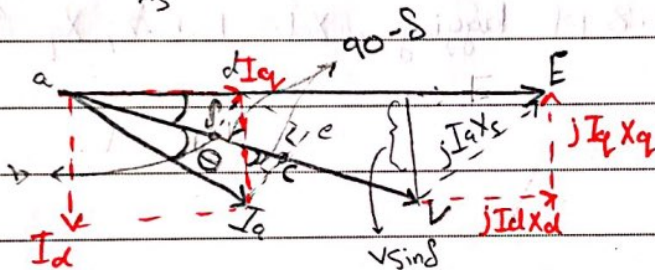 90-δ
a d Iq E
δ c
jIaXs jIqXq
θ c
b
Ia V jIdXd
Id
Vsinδ